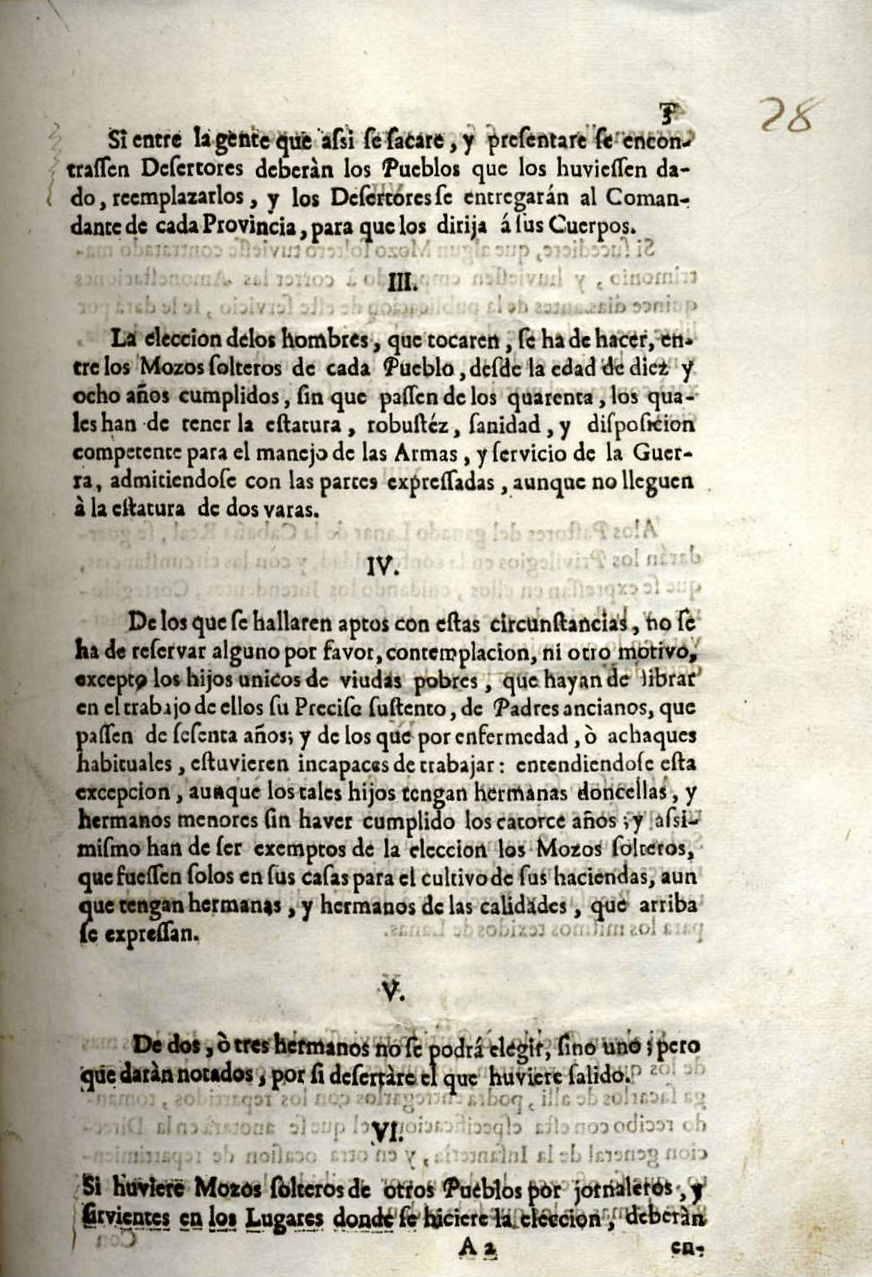 3 28
Si entre la gente que assi se sacare, y presentare se encon-
trassen Desertores deberàn los Pueblos que los huviessen da-
do, reemplazarlos, y los Desertores se entregarán al Coman-
dante de cada Provincia, para que los dirija á sus Cuerpos.
III.
La eleccion de los hombres, que tocaren, se ha de hacer, en-
tre los Mozos solteros de cada Pueblo, desde la edad de diez y
ocho años cumplidos, sin que passen de los quarenta, los qua-
les han de tener la estatura, robustéz, sanidad, y disposicion
competente para el manejo de las Armas, y servicio de la Guer-
ra, admitiendose con las partes expressadas, aunque no lleguen
à la estatura de dos varas.
IV.
De los que se hallaren aptos con estas circunstancias, no se
ha de reservar alguno por favor, contemplacion, ni otro motivo,
excepto los hijos unicos de viudas pobres, que hayan de librar
en el trabajo de ellos su Preciso sustento, de Padres ancianos, que
passen de sesenta años; y de los que por enfermedad, ò achaques
habituales, estuvieren incapaces de trabajar: entendiendose esta
excepcion, aunque los tales hijos tengan hermanas doncellas, y
hermanos menores sin haver cumplido los catorce años; y assi-
mismo han de ser exemptos de la eleccion los Mozos solteros,
que fuessen solos en sus casas para el cultivo de sus haciendas, aun
que tengan hermanas, y hermanos de las calidades, que arriba
se expressan.
V.
De dos, ò tres hermanos no se podrá elegir, sino uno; pero
que daràn notados, por si desertàre el que huviere salido.
VI.
Si huviere Mozos solteros de otros Pueblos por jornaleros, y
sirvientes en los Lugares donde se hiciere la eleccion, deberàn
A 2 en-